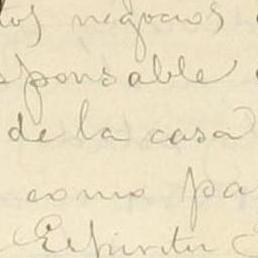 tos negocios
sponsable
de la casa
como pa
Espiritu